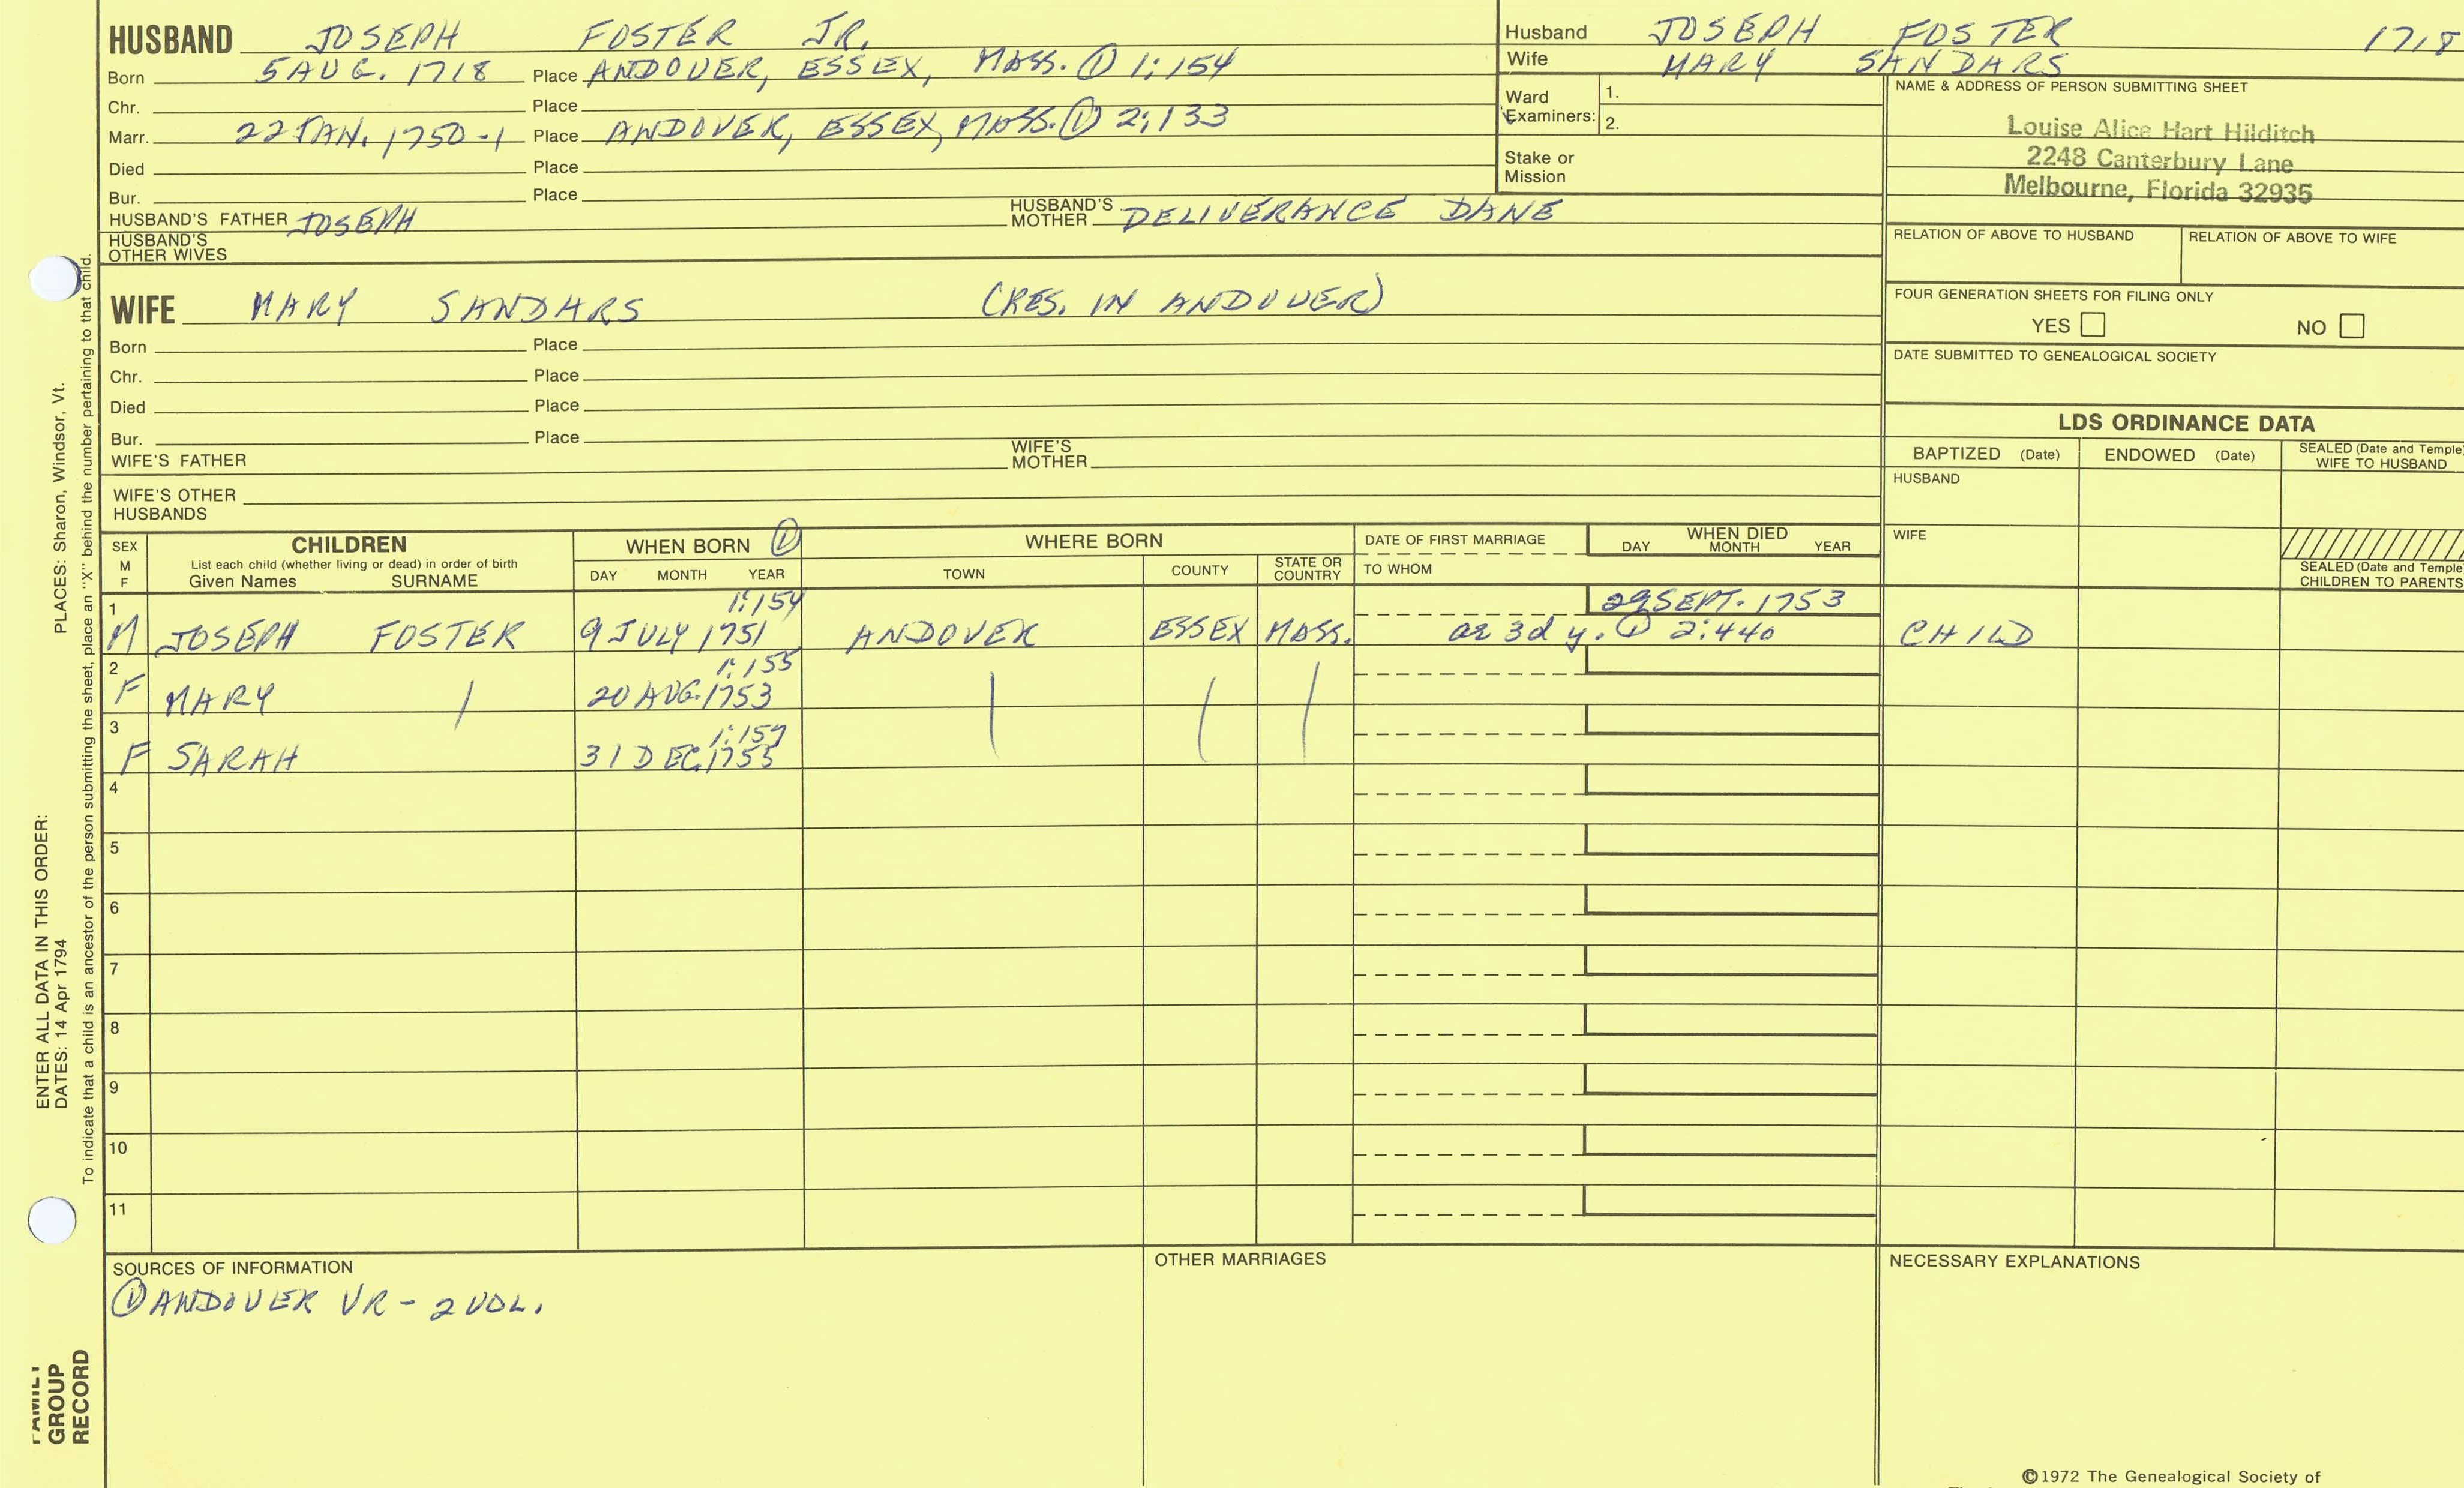 HUSBAND JOSEPH FOSTER JR.
Born 5 AUG. 1718 Place ANDOVER, ESSEX, MASS. ① 1:154
Chr. Place
Marr. 22 JAN. 1750-1 Place ANDOVER, ESSEX, MASS. ① 2:133
Died Place
Bur. Place
HUSBAND'S FATHER JOSEPH HUSBAND'S MOTHER DELIVERANCE DANE
HUSBAND'S OTHER WIVES
Husband JOSEPH FOSTER 1718
Wife MARY SANDARS
Ward Examiners: 1.
2.
Stake or Mission
NAME & ADDRESS OF PERSON SUBMITTING SHEET
Louise Alice Hart Hilditch
2248 Canterbury Lane
Melbourne, Florida 32935
RELATION OF ABOVE TO HUSBAND RELATION OF ABOVE TO WIFE
FOUR GENERATION SHEETS FOR FILING ONLY
YES NO
DATE SUBMITTED TO GENEALOGICAL SOCIETY
WIFE MARY SANDARS (RES. IN ANDOVER)
Born Place
Chr. Place
Died Place
Bur. Place
WIFE'S FATHER WIFE'S MOTHER
WIFE'S OTHER HUSBANDS
LDS ORDINANCE DATA
BAPTIZED (Date) ENDOWED (Date) SEALED (Date and Temple)
WIFE TO HUSBAND
HUSBAND
WIFE
SEALED (Date and Temple)
CHILDREN TO PARENTS
SEX M F
CHILDREN
List each child (whether living or dead) in order of birth
Given Names SURNAME
WHEN BORN ①
DAY MONTH YEAR
WHERE BORN
TOWN COUNTY STATE OR COUNTRY
DATE OF FIRST MARRIAGE
TO WHOM
WHEN DIED
DAY MONTH YEAR
1 1:154 29 SEPT. 1753
M JOSEPH FOSTER 9 JULY 1751 ANDOVER ESSEX MASS. ae 3d y. ① 2:440 CHILD
2 1:155
F MARY 20 AUG. 1753
3 1:157
F SARAH 31 DEC. 1755
4
5
6
7
8
9
10
11
SOURCES OF INFORMATION
① ANDOVER VR - 2 VOL.
OTHER MARRIAGES
NECESSARY EXPLANATIONS
©1972 The Genealogical Society of
PLACES: Sharon, Windsor, Vt.
ENTER ALL DATA IN THIS ORDER:
DATES: 14 Apr 1794
To indicate that a child is an ancestor of the person submitting the sheet, place an "X" behind the number pertaining to that child.
FAMILY
GROUP
RECORD